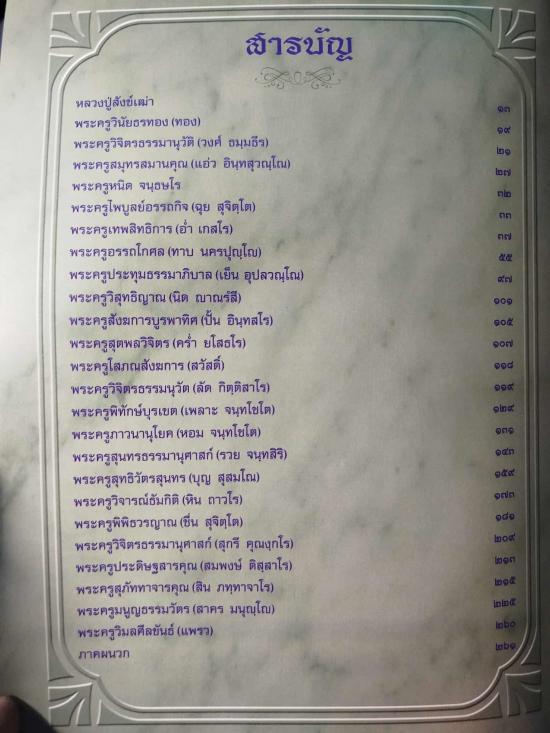 สารบัญ
หลวงปู่สังข์เฒ่า ๑๓
พระครูวินัยธรทอง (ทอง) ๑๙
พระครูวิจิตรธรรมานุวัติ (วงศ์ ธมฺมธีร) ๒๑
พระครูสมุทรสมานคุณ (แอ๋ว อินฺทสุวณฺโณ) ๒๗
พระครูหนิด จนฺธษโร ๓๒
พระครูไพบูลย์อรรถกิจ (ฉุย สุจิตฺโต) ๓๓
พระครูเทพสิทธิการ (อ่ำ เกสโร) ๓๗
พระครูอรรถโกศล (ทาบ นครปุญฺโญ) ๕๕
พระครูประทุมธรรมาภิบาล (เย็น อุปลวณฺโณ) ๙๗
พระครูวิสุทธิญาณ (นิด ญาณรํสี) ๑๐๑
พระครูสังฆการบูรพาทิศ (ปั้น อินฺทสโร) ๑๐๕
พระครูสุตพลวิจิตร (คร่ำ ยโสธโร) ๑๐๗
พระครูโสภณสังฆการ (สวัสดิ์) ๑๑๘
พระครูวิจิตรธรรมนุวัต (ลัด กิตฺติสาโร) ๑๑๙
พระครูพิทักษ์บุรเขต (เพลาะ จนฺทโชโต) ๑๒๙
พระครูภาวนานุโยค (หอม จนฺทโชโต) ๑๓๑
พระครูสุนทรธรรมานุศาสก์ (รวย จนฺทสิริ) ๑๔๓
พระครูสุทธิวัตรสุนทร (บุญ สุสมโณ) ๑๕๙
พระครูวิจารณ์ธัมกิติ (หิน ถาวโร) ๑๗๓
พระครูพิพิธวรญาณ (ชื่น สุจิตฺโต) ๑๘๑
พระครูวิจิตรธรรมานุศาสก์ (สุกรี คุณงฺกโร) ๒๐๙
พระครูประดิษฐสารคุณ (สมพงษ์ ติสฺสาโร) ๒๑๓
พระครูสุภัททาจารคุณ (สิน ภทฺทาจาโร) ๒๑๕
พระครูมนูญธรรมวัตร (สาคร มนุญฺโญ) ๒๒๕
พระครูวิมลศีลขันธ์ (แพรว) ๒๖๐
ภาคผนวก ๒๖๑